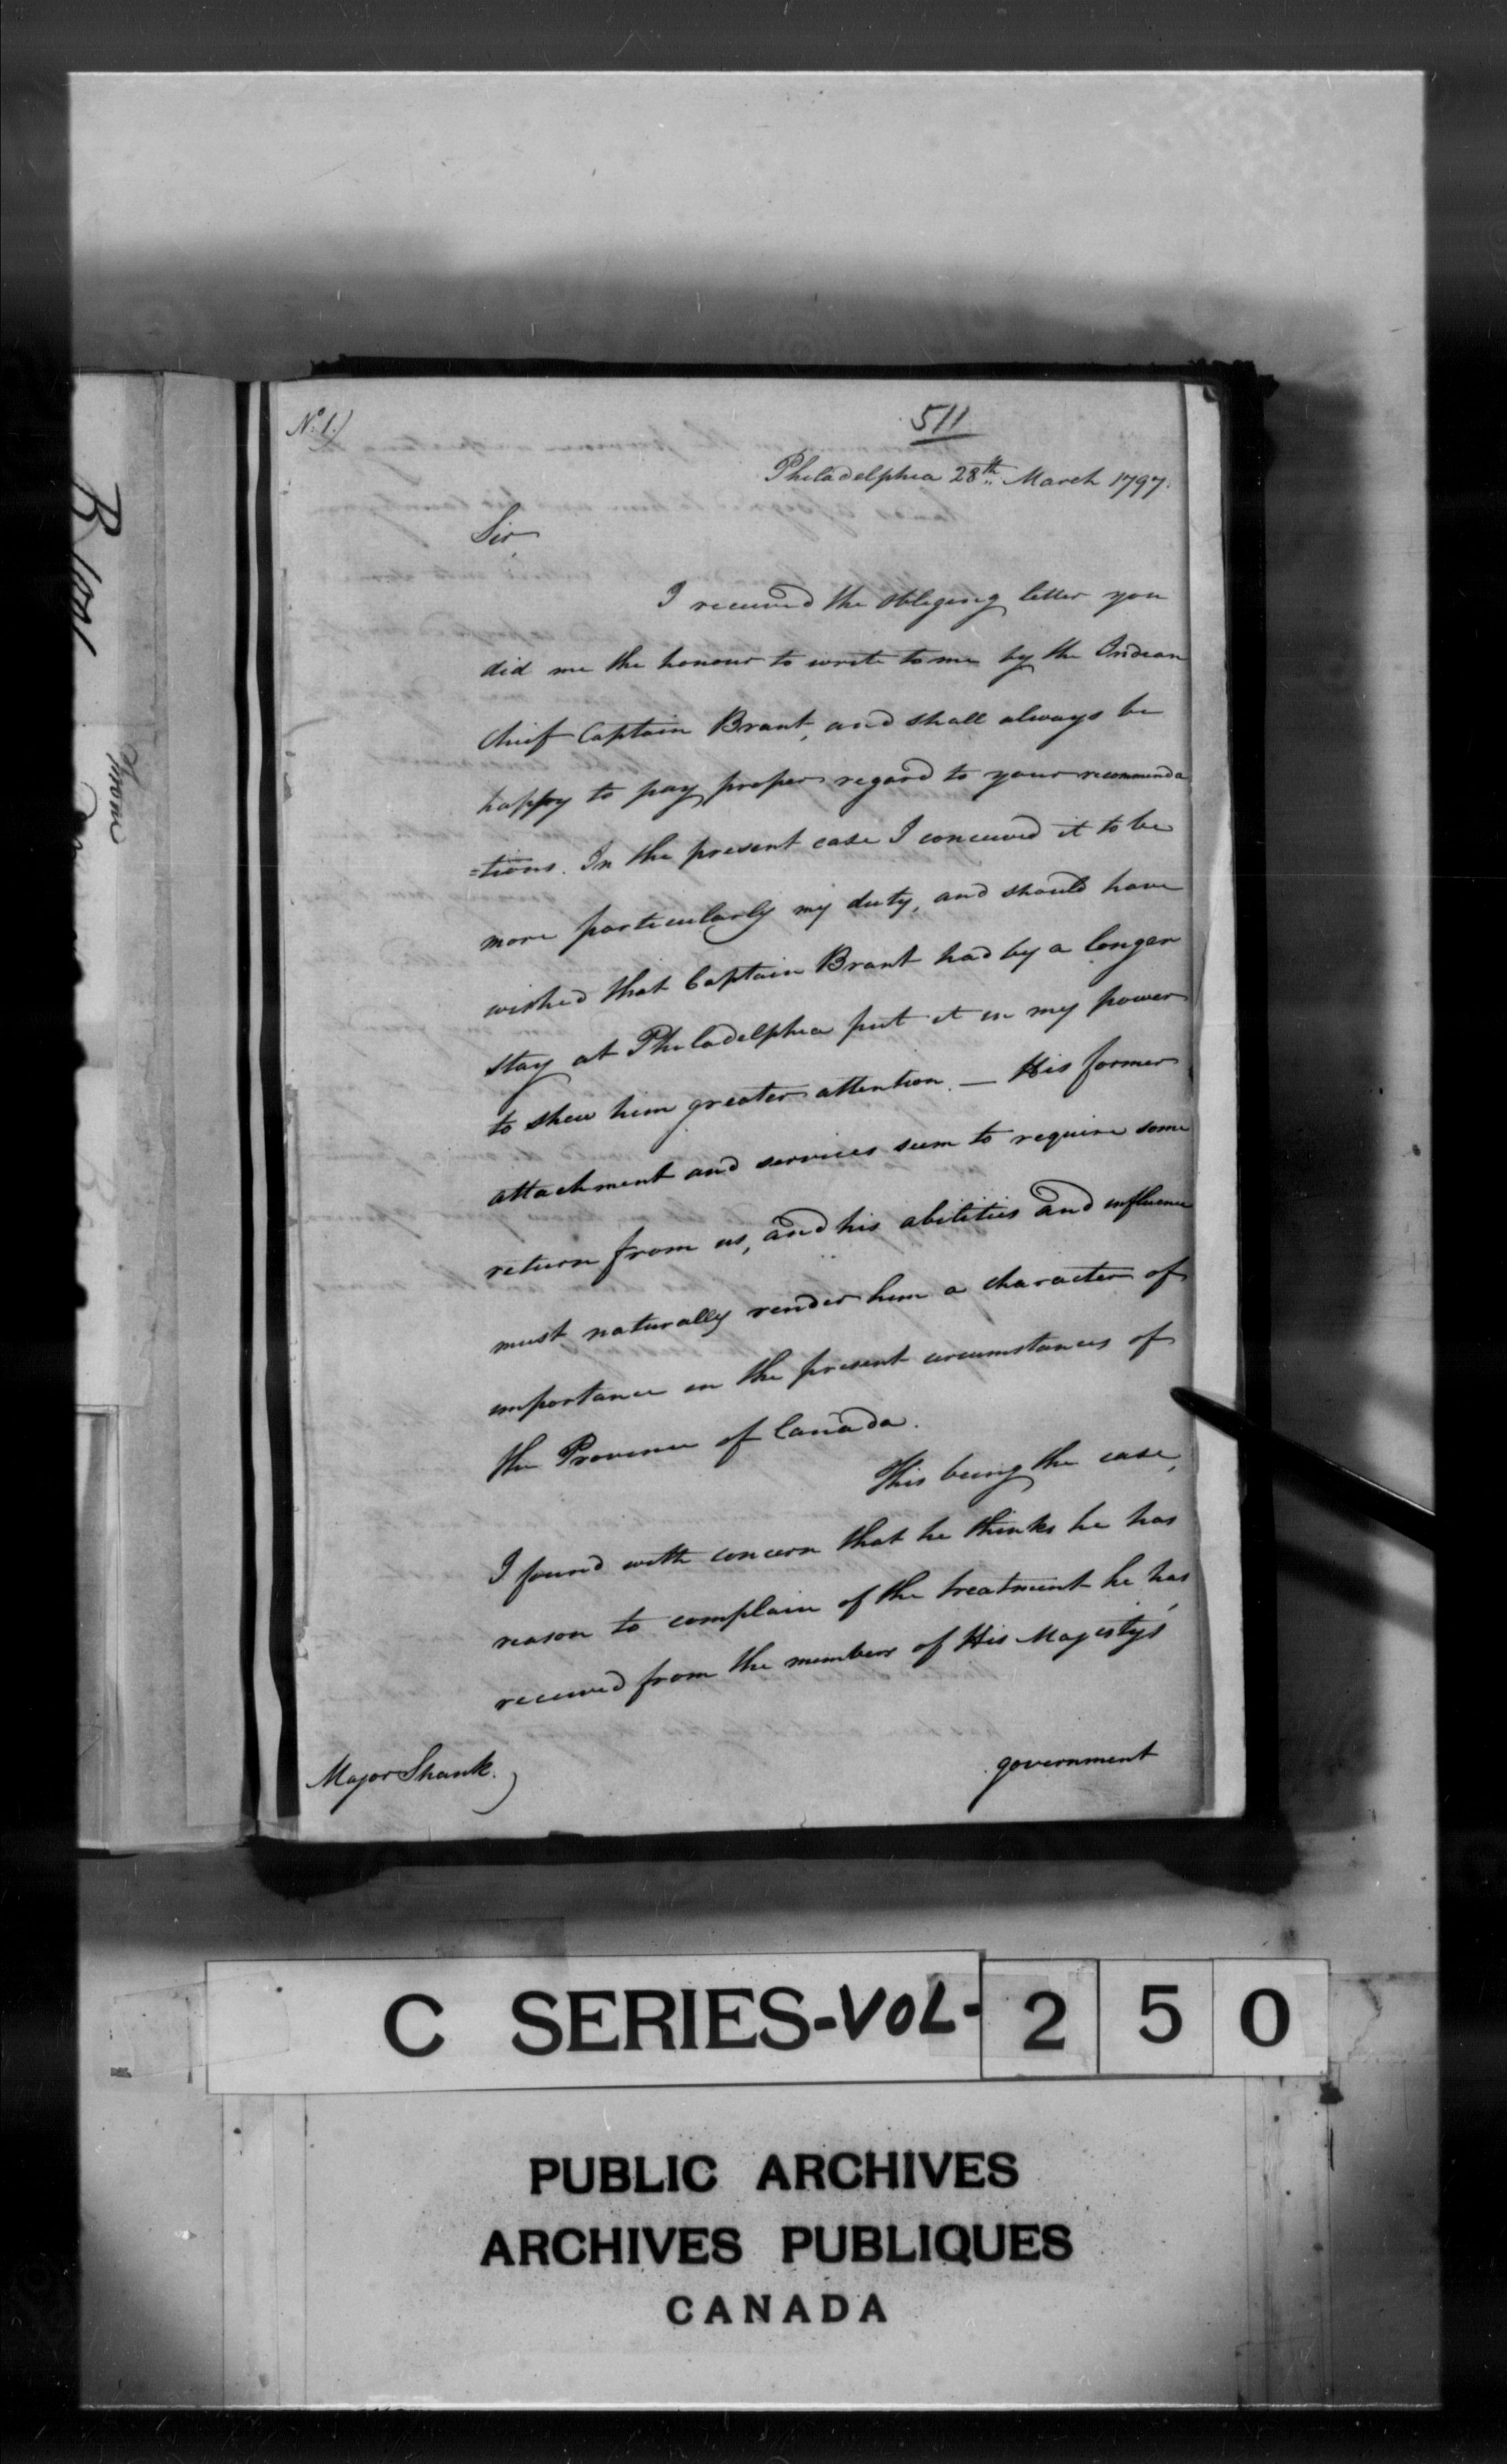 No. 1.)
511
Philadelphia 28th. March 1797.
Sir
I received the obliging letter you
did me the honour to write to me by the Indian
Chief Captain Brant, and shall always be
happy to pay proper regard to your recommenda
=tions. In the present case I conceived it to be
more particularly my duty, and should have
wished that Captain Brant had by a longer
stay at Philadelphia put it in my power
to shew him greater attention. — His former
attachment and services seem to require some
return from us, and his abilities and influence
must naturally render him a character of
importance in the present circumstances of
the Province of Canada.
This being the case,
I found with concern that he thinks he has
reason to complain of the treatment he has
received from the members of His Majesty's
Major Shank.
government
From
C SERIES-VOL-250
PUBLIC ARCHIVES
ARCHIVES PUBLIQUES
CANADA